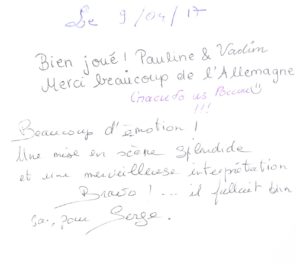 Le 9/04/17
Bien joué ! Pauline & Vadim
Merci beaucoup de l'Allemagne
Спасибо из
!!!
Beaucoup d'émotion !
Une mise en scène splendide
et une merveilleuse interprétation
Bravo ! ... il fallait bien
ça, pour Serge.